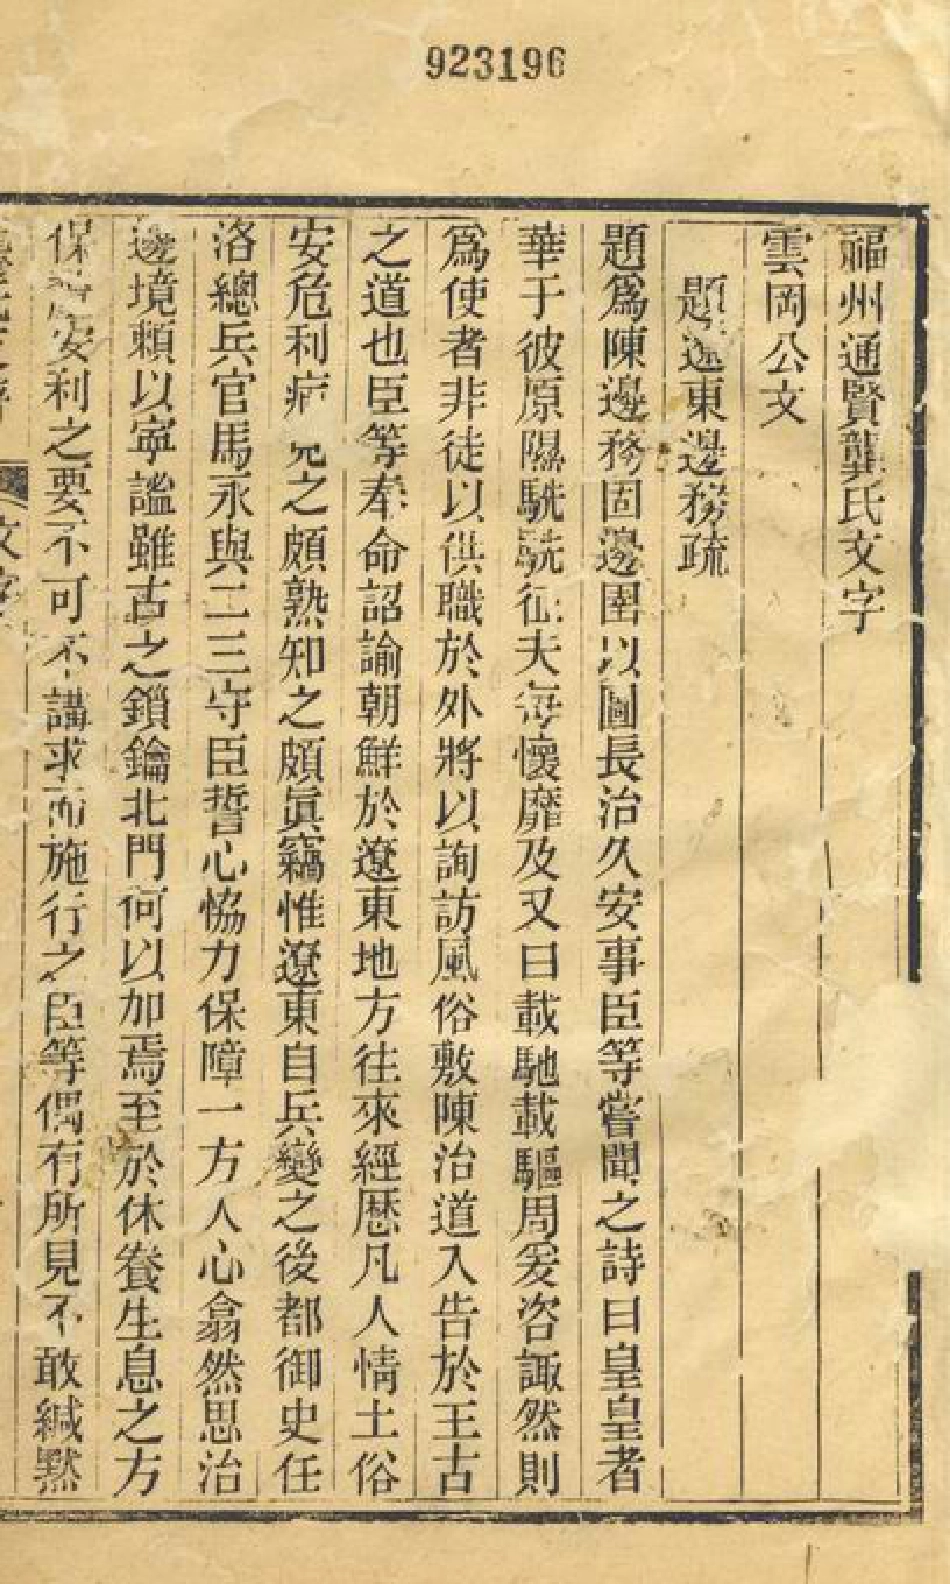 923196
福州通賢龔氏文字
雲岡公文
題遼東邊務疏
題爲陳邊務固邊圉以圖長治久安事臣等嘗聞之詩曰皇皇者
華于彼原隰駪駪征夫每懷靡及又曰載馳載驅周爰咨諏然則
爲使者非徒以供職於外將以詢訪風俗敷陳治道入告於王古
之道也臣等奉命詔諭朝鮮於遼東地方往來經歷凡人情土俗
安危利病究之頗熟知之頗眞竊惟遼東自兵變之後都御史任
洛總兵官馬永與二三守臣誓心恊力保障一方人心翕然思治
邊境頼以寧謐雖古之鎖鑰北門何以加焉至於休養生息之方
保安利之要不可不講求而施行之臣等偶有所見不敢緘默
文字